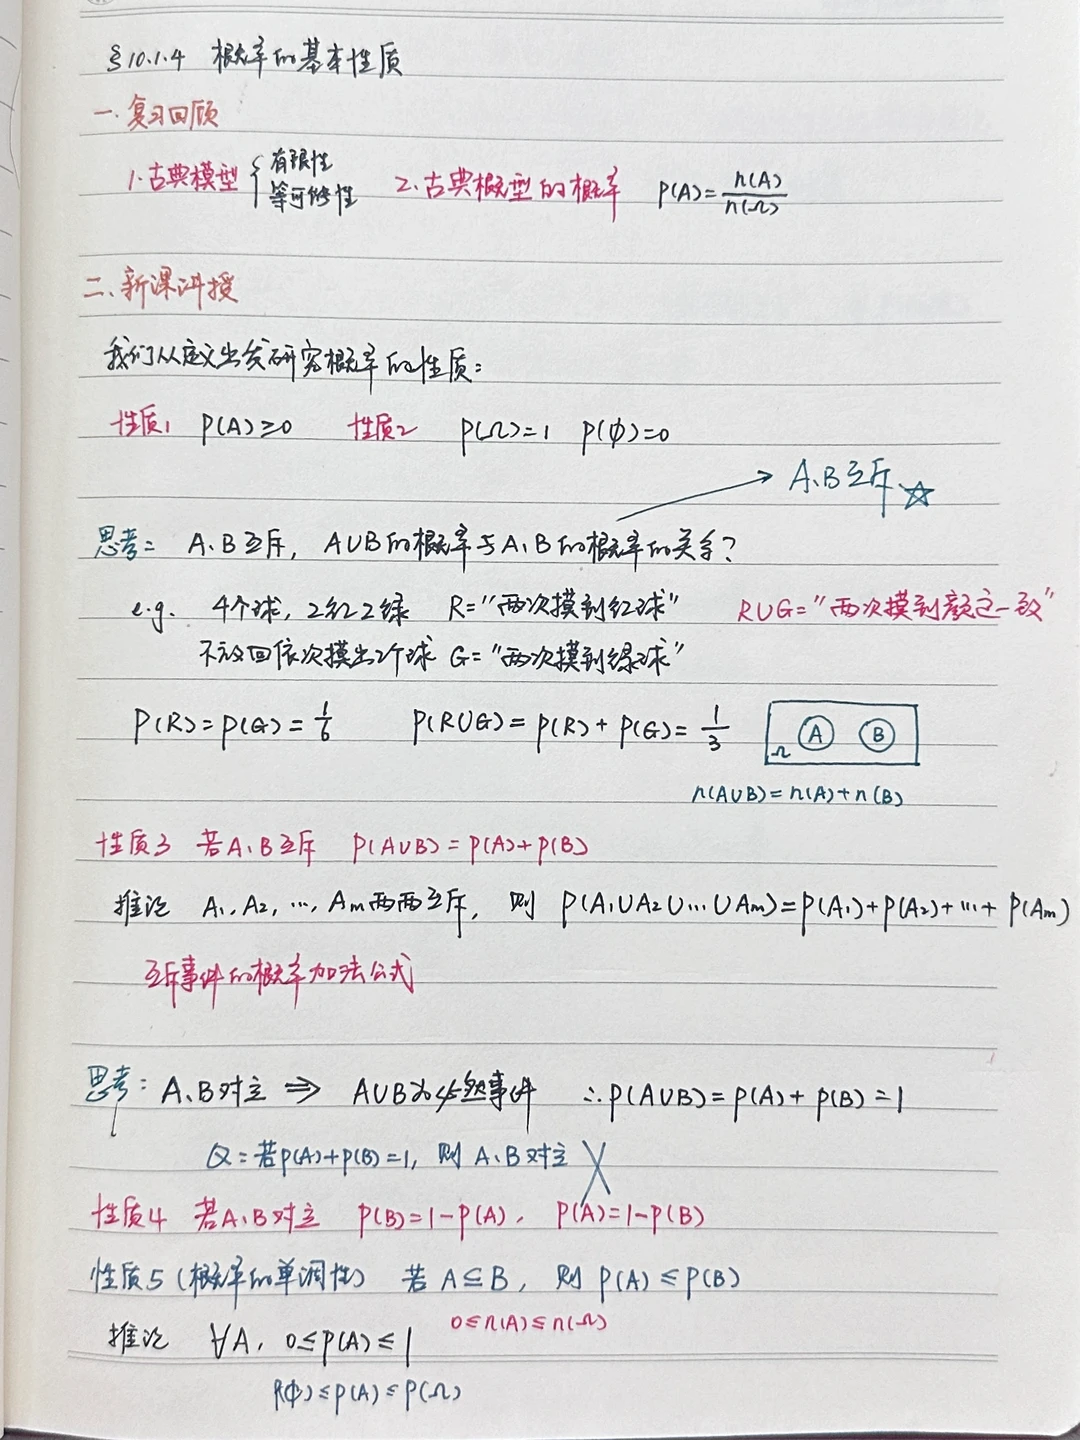 §10.1.4 概率的基本性质
一.复习回顾
1.古典模型 { 有限性 等可能性 2.古典概型的概率 P(A)=n(A)/n(Ω)
二、新课讲授
我们从定义出发研究概率的性质:
性质1 P(A)≥0 性质2 P(Ω)=1 P(∅)=0
→ A、B互斥 ☆
思考: A、B互斥, A∪B的概率与A、B的概率的关系?
e.g. 4个球, 2红2绿 R="两次摸到红球" R∪G="两次摸到颜色一致"
不放回依次摸出2个球 G="两次摸到绿球"
P(R)=P(G)=1/6 P(R∪G)=P(R)+P(G)=1/3 Ω A B
n(A∪B)=n(A)+n(B)
性质3 若A、B互斥 P(A∪B)=P(A)+P(B)
推论 A₁,A₂,…,Am两两互斥, 则 P(A₁∪A₂∪…∪Am)=P(A₁)+P(A₂)+…+P(Am)
互斥事件的概率加法公式
思考: A、B对立 ⇒ A∪B为必然事件 ∴P(A∪B)=P(A)+P(B)=1
Q:若P(A)+P(B)=1, 则A、B对立 ╳
性质4 若A、B对立 P(B)=1-P(A), P(A)=1-P(B)
性质5(概率的单调性) 若A⊆B, 则P(A)≤P(B)
0≤n(A)≤n(Ω)
推论 ∀A, 0≤P(A)≤1
P(∅)≤P(A)≤P(Ω)